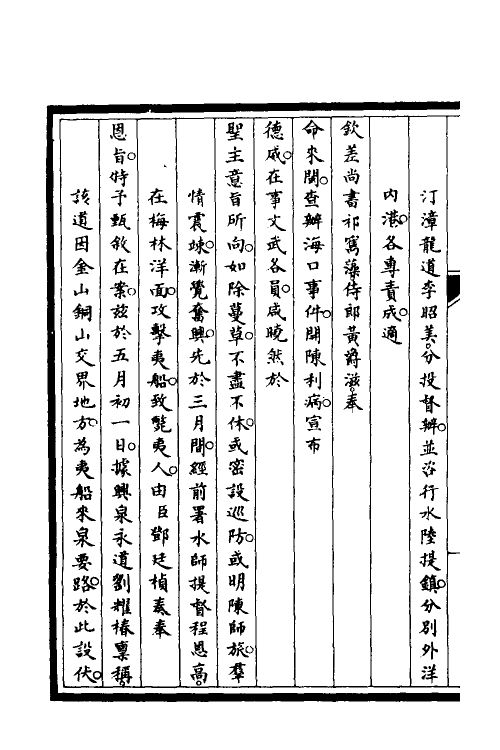 汀漳龍道李昭美。分投督辦。並咨行水陸提鎮。分別外洋
內港。各專責成。適
欽差尚書祁寯藻侍郎黃爵滋。奉
命來閩。查辦海口事件。開陳利病。宣布
德威。在事文武各員。咸曉然於
聖主意旨所向。如除蔓草。不盡不休。或密設巡防。或明陳師旅。羣
情震竦。漸覺奮興。先於三月間。經前署水師提督程恩高。
在梅林洋面。攻擊夷船。致斃夷人。由臣鄧廷楨奏奉
恩旨。特予甄敘在案。茲於五月初一日。據興泉永道劉耀椿稟稱。
該道因金山銅山交界地方。為夷船來泉要路。於此設伏。